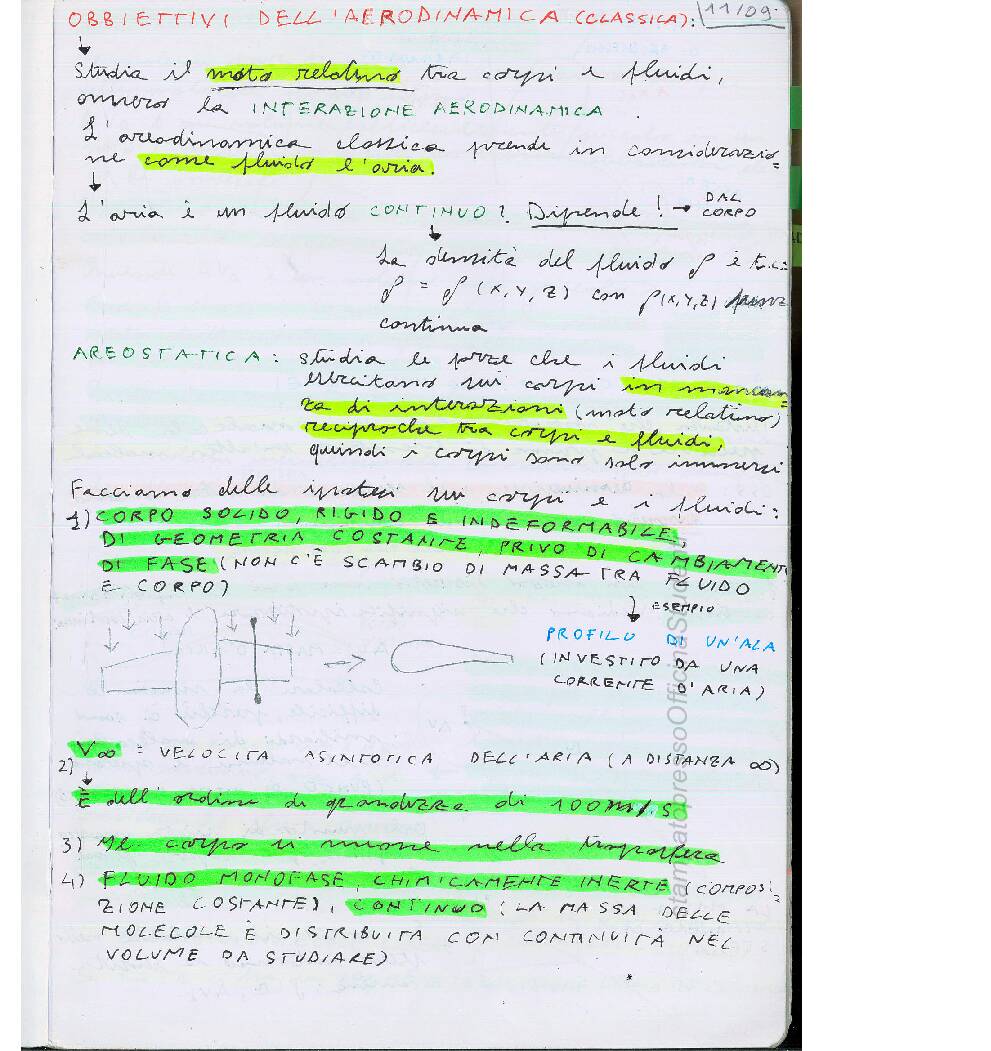 OBBIETTIVI DELL'AERODINAMICA (CLASSICA): 11/09
Studia il moto relativo tra corpi e fluidi,
ovvero la INTERAZIONE AERODINAMICA.
L'areodinamica classica prende in considerazio=
ne come fluido l'aria.
L'aria è un fluido CONTINUO? Dipende! → DAL
CORPO
La densità del fluido ρ è t.c.
ρ = ρ (X, Y, Z) con ρ(X,Y,Z)
continua
AREOSTATICA: studia le forze che i fluidi
esercitano sui corpi in mancan=
za di interazioni (moto relativo)
reciproche tra corpi e fluidi,
quindi i corpi sono solo immersi
Facciamo delle ipotesi sui corpi e i fluidi:
1) CORPO SOLIDO, RIGIDO E INDEFORMABILE,
DI GEOMETRIA COSTANTE, PRIVO DI CAMBIAMENTI
DI FASE (NON C'È SCAMBIO DI MASSA TRA FLUIDO
E CORPO)
ESEMPIO
PROFILO DI UN'ALA
(INVESTITO DA UNA
CORRENTE D'ARIA)
2) V∞ = VELOCITA ASINTOTICA DELL'ARIA (A DISTANZA ∞)
È dell'ordine di grandezza di 100 m/s
3) Il corpo si muove nella troposfera
4) FLUIDO MONOFASE, CHIMICAMENTE INERTE (COMPOSI=
ZIONE COSTANTE), CONTINUO (LA MASSA DELLE
MOLECOLE È DISTRIBUITA CON CONTINUITÀ NEL
VOLUME DA STUDIARE)